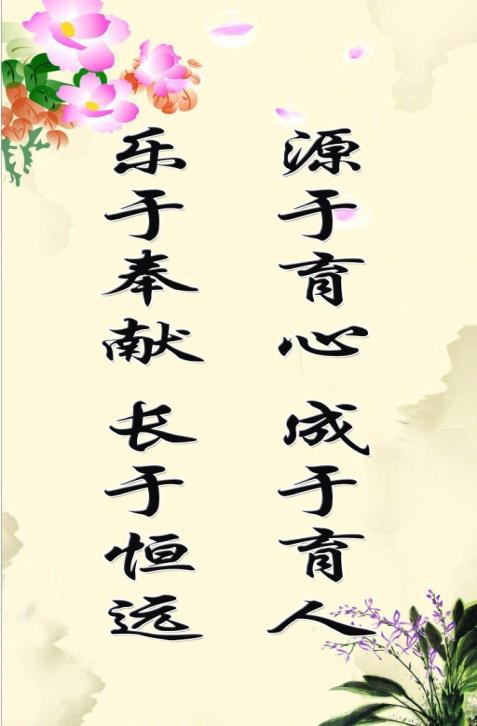 源于育心 成于育人
乐于奉献 长于恒远